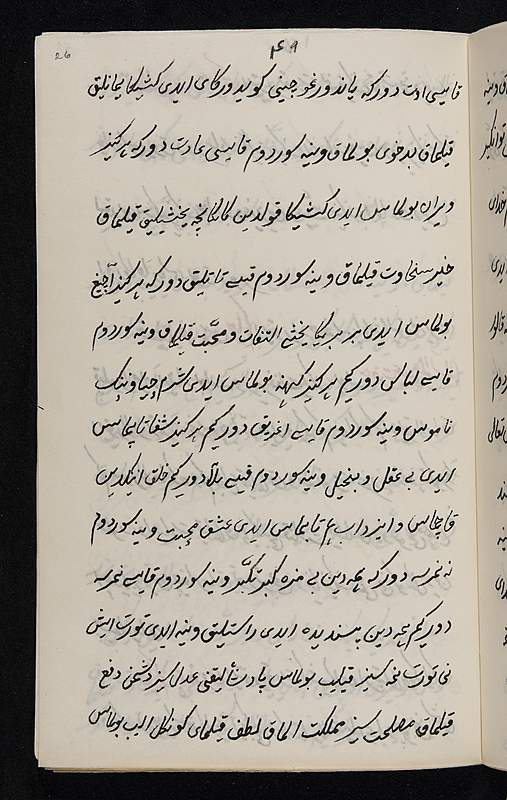 26
۴۹
قایسی ات دورکه یاندورغوجینی کویدورکای ایدی کشیکا یمانلیق
قیلماق بدخوی بولماق وینه کوردوم قایسی عادت دورکه هرکیز
ویران بولماس ایدی کشیکا قولدین کلکانچه یخشیلیق قیلماق
خیر سخاوت قیلماق وینه کوردوم قیسی تاتلیق دورکه هرکیز آجیغ
بولماس ایدی هر بریکا یخشی التفات ومحبت قیلماق وینه کوردوم
قایسی لباس دورکیم هرکیز کهنه بولماس ایدی شرم وحیا وننک
ناموس وینه کوردوم قایسی اغریق دورکیم هرکیز شفا تاپماس
ایدی بی عقل وبخیل وینه کوردوم قیسی بلا دورکیم خلق انیکدین
قاچماس وایزداب هم تاپماس ایدی عشق محبت وینه کوردوم
نه نمرسه دورکه همه دین بی مزه کبر تکبر وینه کوردوم قایسی نمرسه
دورکیم همه دین پسندیده ایدی راستلیق وینه ایدی تورت ایش
نی تورت نمه سیز قیلیب بولماس پادشاه لیقنی عدل سیز دشمن دفع
قیلماق مصلحت سیز مملکت الماق لطف قیلمای کونکل الیب بولماس